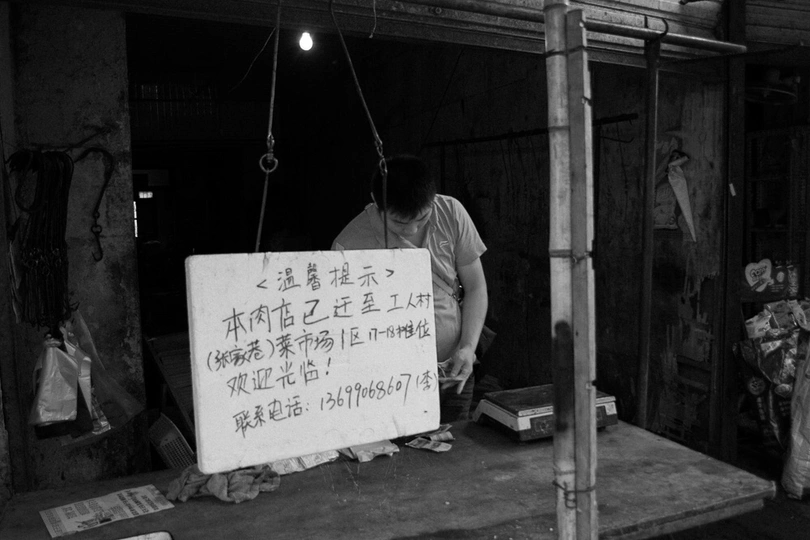 <温馨提示>
本肉店已迁至工人村
(张家巷)菜市场1区17-18摊位
欢迎光临!
联系电话:13699068607(李)